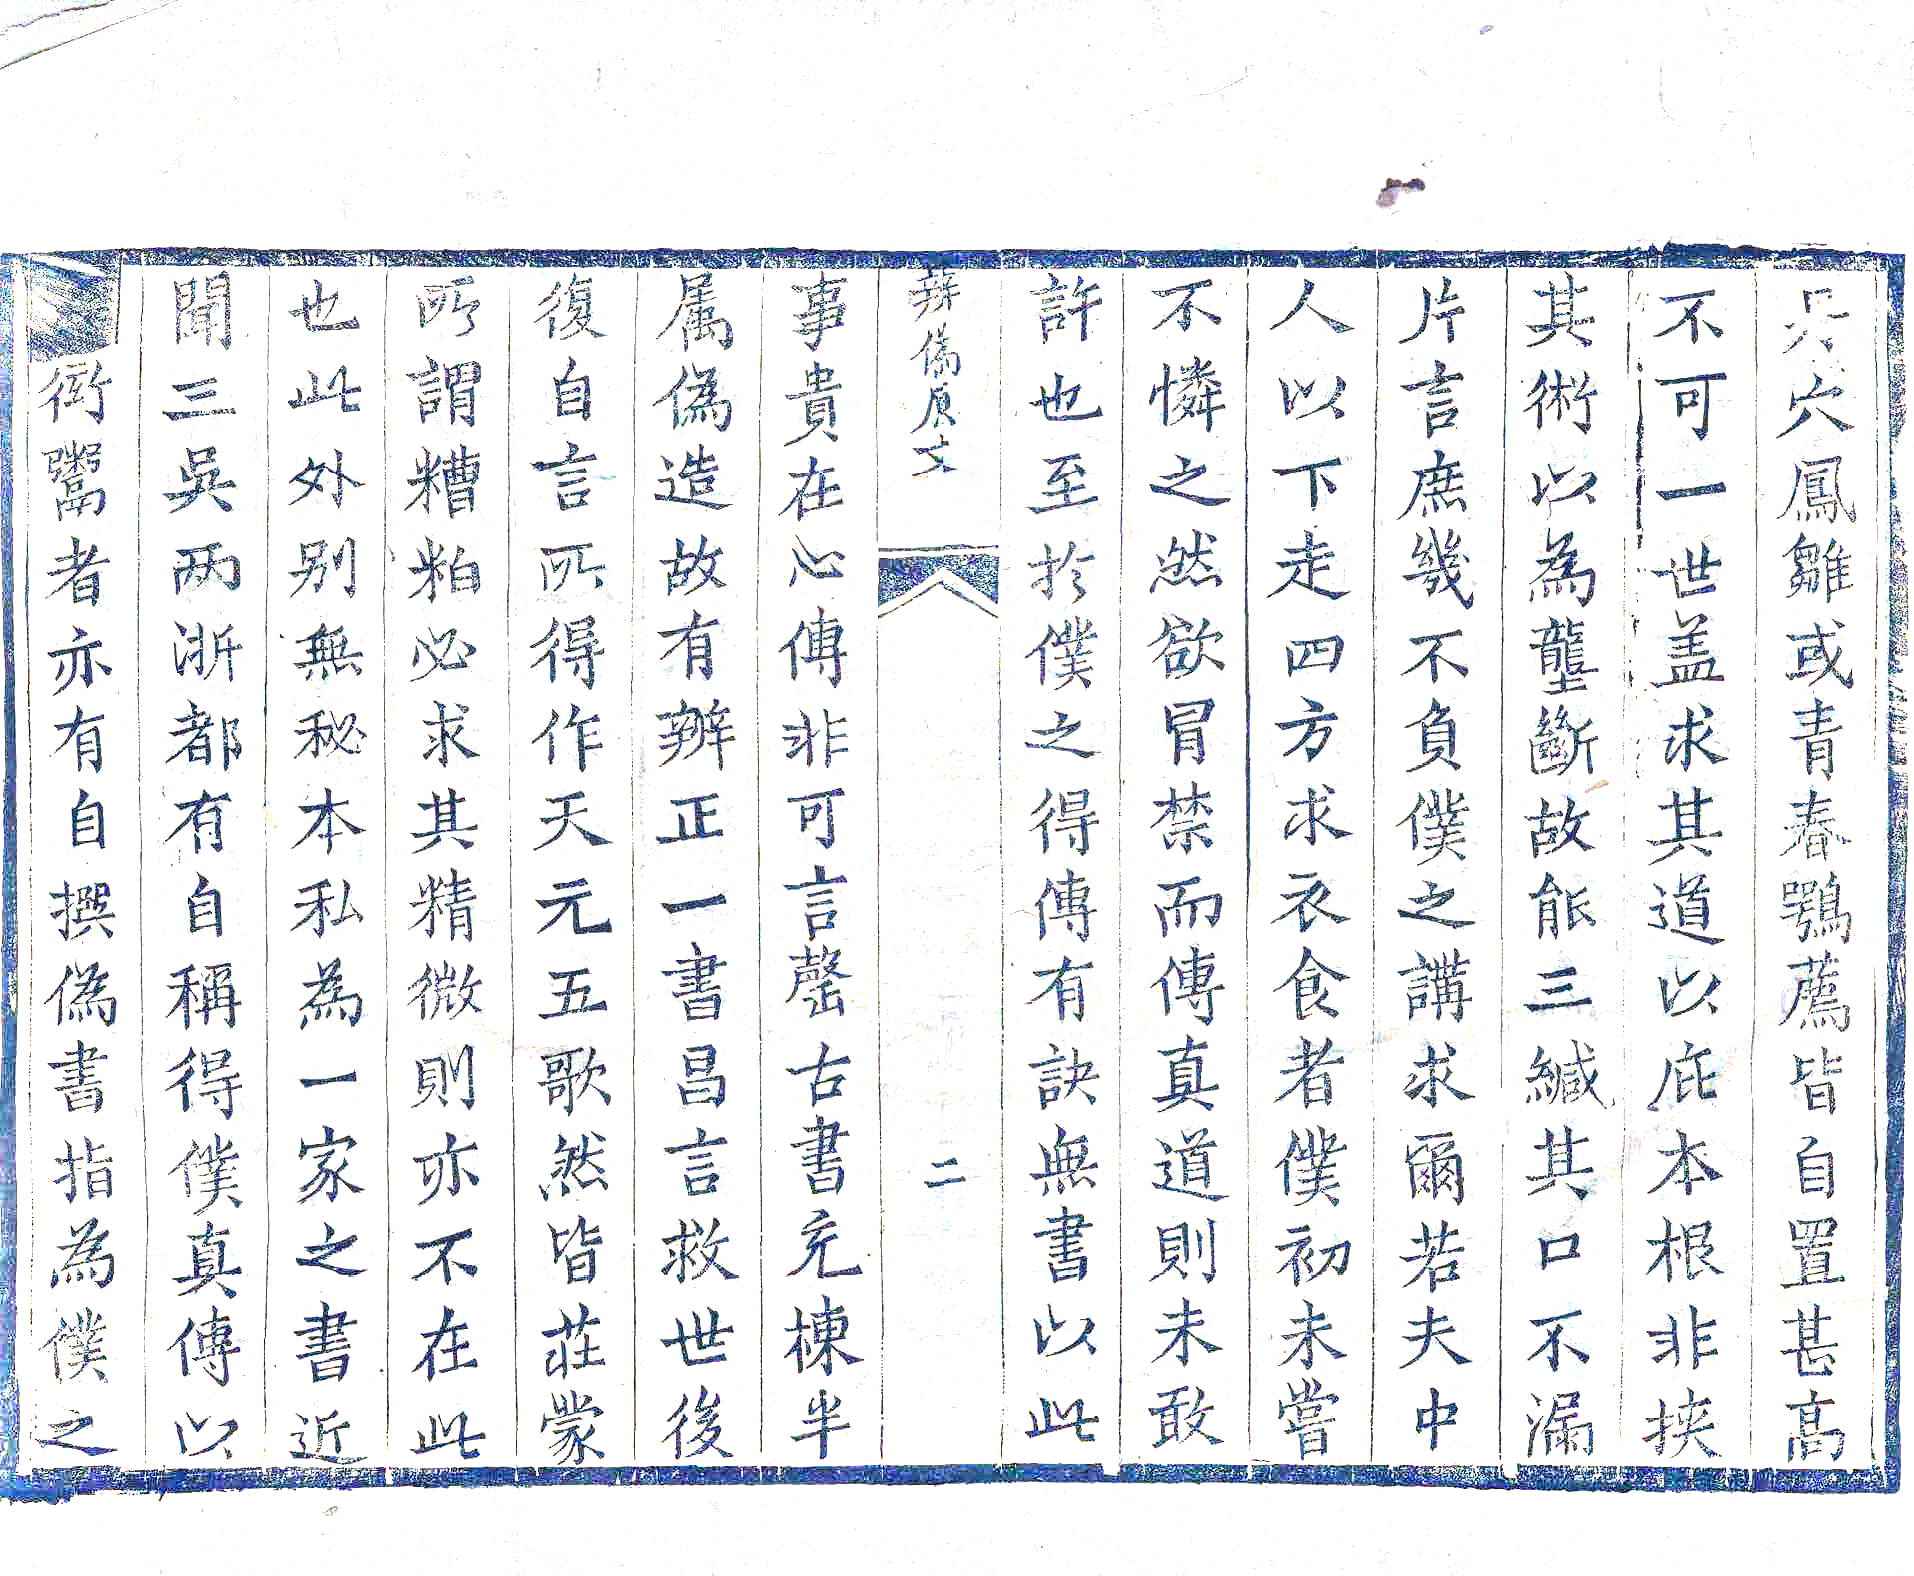 穴鳳雛或青春鶚薦皆自置甚高
不可一世盖求其道以庇本根非挾
其術以為壟斷故能三緘其口不漏
片言庶幾不負僕之講求爾若夫中
人以下走四方求衣食者僕初未嘗
不憐之然欲冒禁而傳真道則未敢
許也至於僕之得傳有訣無書以此
辨偽原文
二
事貴在心傳非可言罄古書充棟半
属偽造故有辨正一書昌言救世後
復自言所得作天元五歌然皆莊蒙
所謂糟粕必求其精微則亦不在此
也此外别無秘本私為一家之書近
聞三吳兩浙都有自稱得僕真傳以
衒鬻者亦有自撰偽書指為僕之